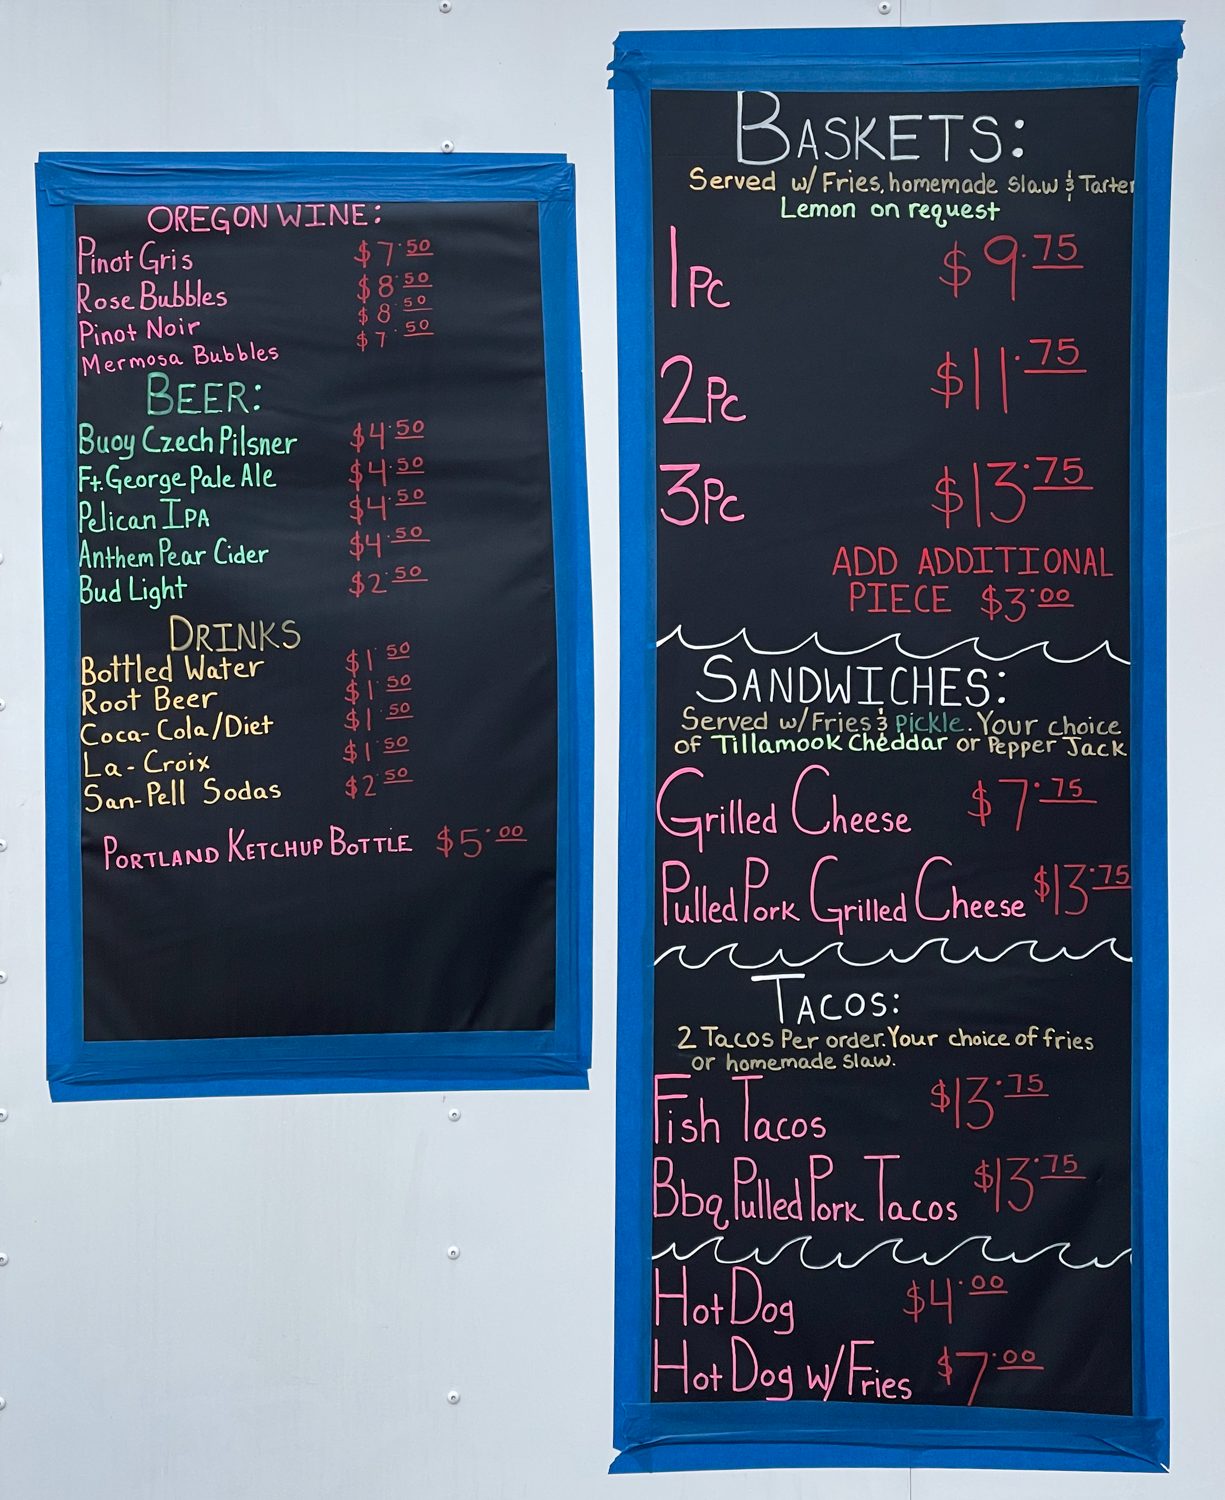 OREGON WINE:
Pinot Gris $7.50
Rose Bubbles $8.50
Pinot Noir $8.50
Mermosa Bubbles $7.50
BEER:
Buoy Czech Pilsner $4.50
Ft. George Pale Ale $4.50
Pelican IPA $4.50
Anthem Pear Cider $4.50
Bud Light $2.50
DRINKS
Bottled Water $1.50
Root Beer $1.50
Coca-Cola/Diet $1.50
La-Croix $1.50
San-Pell Sodas $2.50
PORTLAND KETCHUP BOTTLE $5.00
BASKETS:
Served w/Fries, homemade slaw & Tarter
Lemon on request
1Pc $9.75
2Pc $11.75
3Pc $13.75
ADD ADDITIONAL
PIECE $3.00
SANDWICHES:
Served w/Fries & Pickle. Your choice
of Tillamook Cheddar or Pepper Jack
Grilled Cheese $7.75
Pulled Pork Grilled Cheese $13.75
TACOS:
2 Tacos Per order. Your choice of fries
or homemade slaw.
Fish Tacos $13.75
Bbq Pulled Pork Tacos $13.75
Hot Dog $4.00
Hot Dog w/Fries $7.00